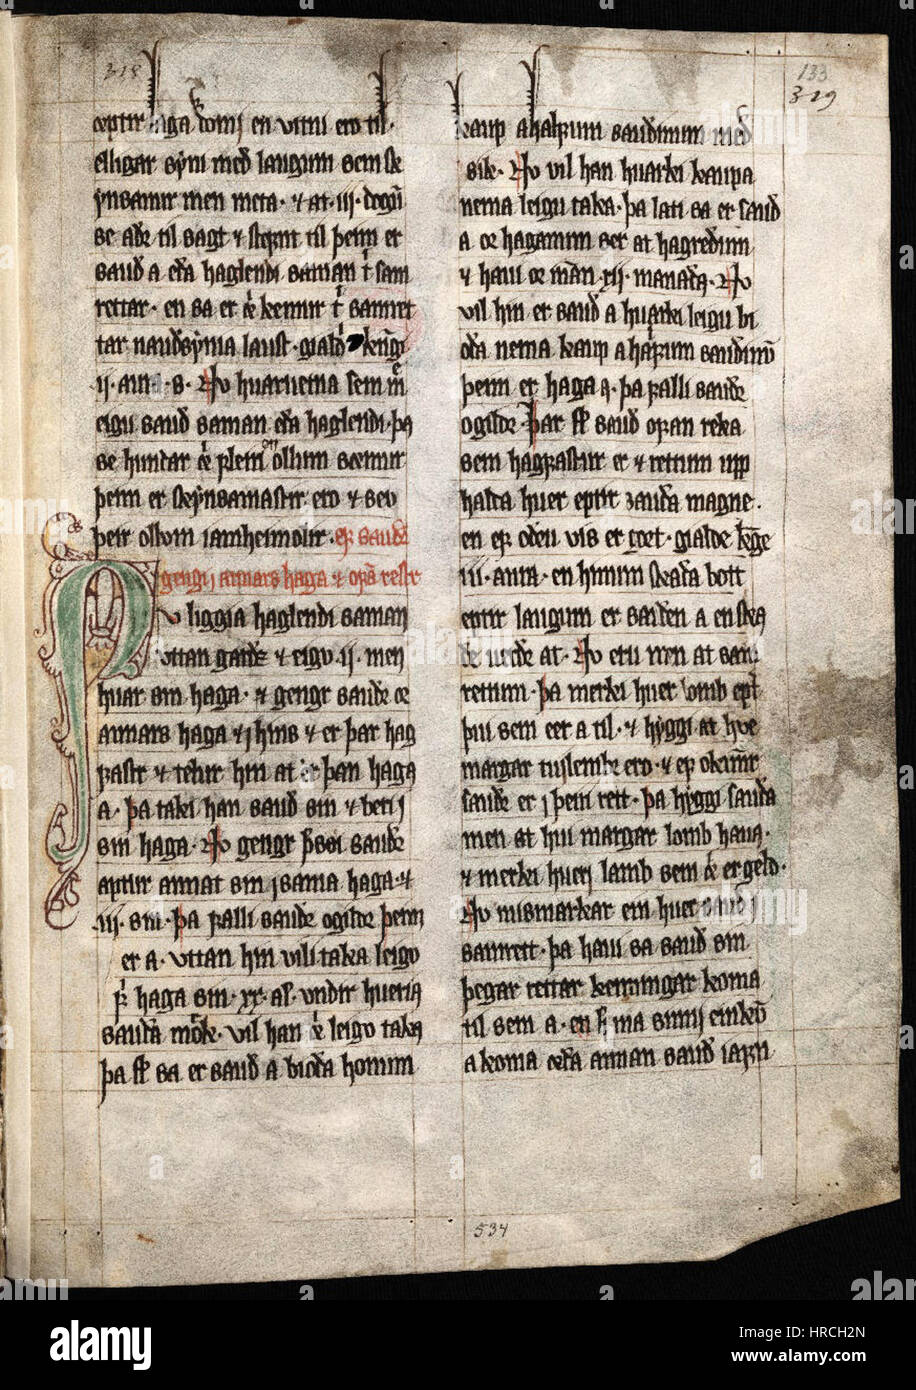 318
133
319
eptir liga domi en vitni ero til
elligar syni með laugum sem sk
ynsamir men meta · & at · iij · dogū
se aðr til sagt & stefnt til þeim er
sauð a eða haglendi saman t sam
rettar · en sa er kemir t samret
tar nauðsynia laust · gialdi kgi
ij · aura · s · Nu huarvetna sem mē
eigu sauð saman eða haglendi · þa
se hundar fleiri ollum scemir
þeim er skynsamastir ero & seu
þeir ollom iamheimolir · ef sauðr
gengr j annars haga & ofa rettr
Nu liggia haglendi saman
vttan garðz & eigo · ij · men
huar sin haga · & gengr sauðr or
annars haga & j hins & er þar hag
fastr & tehir hin at þan haga
a · þa taki han sauð sin & beti j
sin haga · Nu gengr þesi sauðr
aptir annat sin j sama haga · &
iij · sin · þa falli sauðr ogildr þeim
er a · vttan hin vili taka leigo
fir haga sin · xx · al · vndir hueria
sauða miolk · vil han leigo taka
þa skal sa er sauð a bioða honum
kaup a halfum sauðinum með
slik · Nu vil han huarki kaupa
nema leigu taka · þa lati sa er sauð
a or hagamum ser at hagredum
& haui or man · xij · manaða · Nu
vil hin er sauð a huarki leigu bi
oða nema kaup a halfum sauðinū
þeim er haga a · þa falli sauðr
ogildr · þar skal sauð ofan reka
sem hagfastur er & rettum upp
halda huer eptir sauða magne ·
en ef oðru vis er gort · gialde kge
iij · aura · en hinum skaða bott
eptir laugum er sauðen a en ska
de verðr at · Nu eru men at sauð
rettum · þa merki huer lomb ept
þui sem eer a til · & hyggi at hve
margar tuilembr ero · & ef okunnr
sauðr er j þeiri rett · þa hyggi sauða
men at hui margar lomb haua ·
& merki hueri lamb sem er geld ·
Nu mismarkar ein huer sauð j
samrett · þa haui sa sauð sin
þegar rettar kenningar koma
til sem a · en hina sinni einkū
a koma eða annan sauð iafn
534
alamy
Image ID: HRCH2N
www.alamy.com